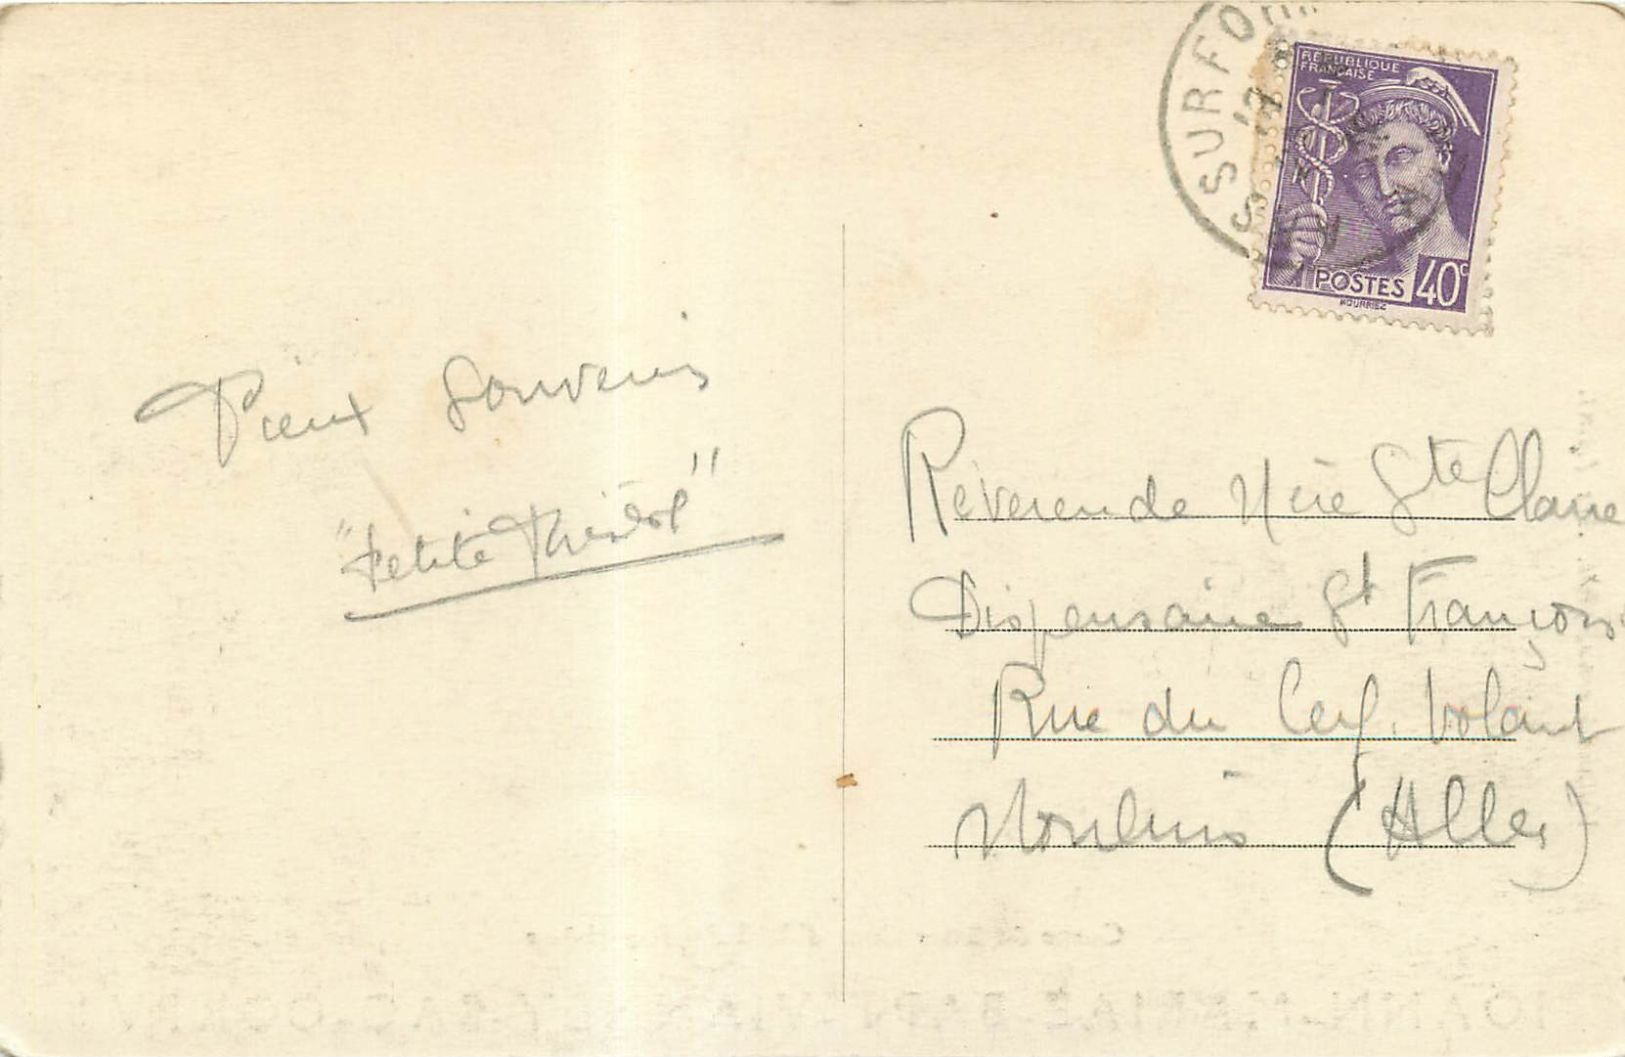 SURFO
RÉPUBLIQUE
FRANÇAISE
POSTES 40c
Pieux Souvenirs
"Petite Thérèse"
Révérende Mère Ste Claire
Dispensaire St François
Rue du Cerf. Volant
Moulins (Allier)